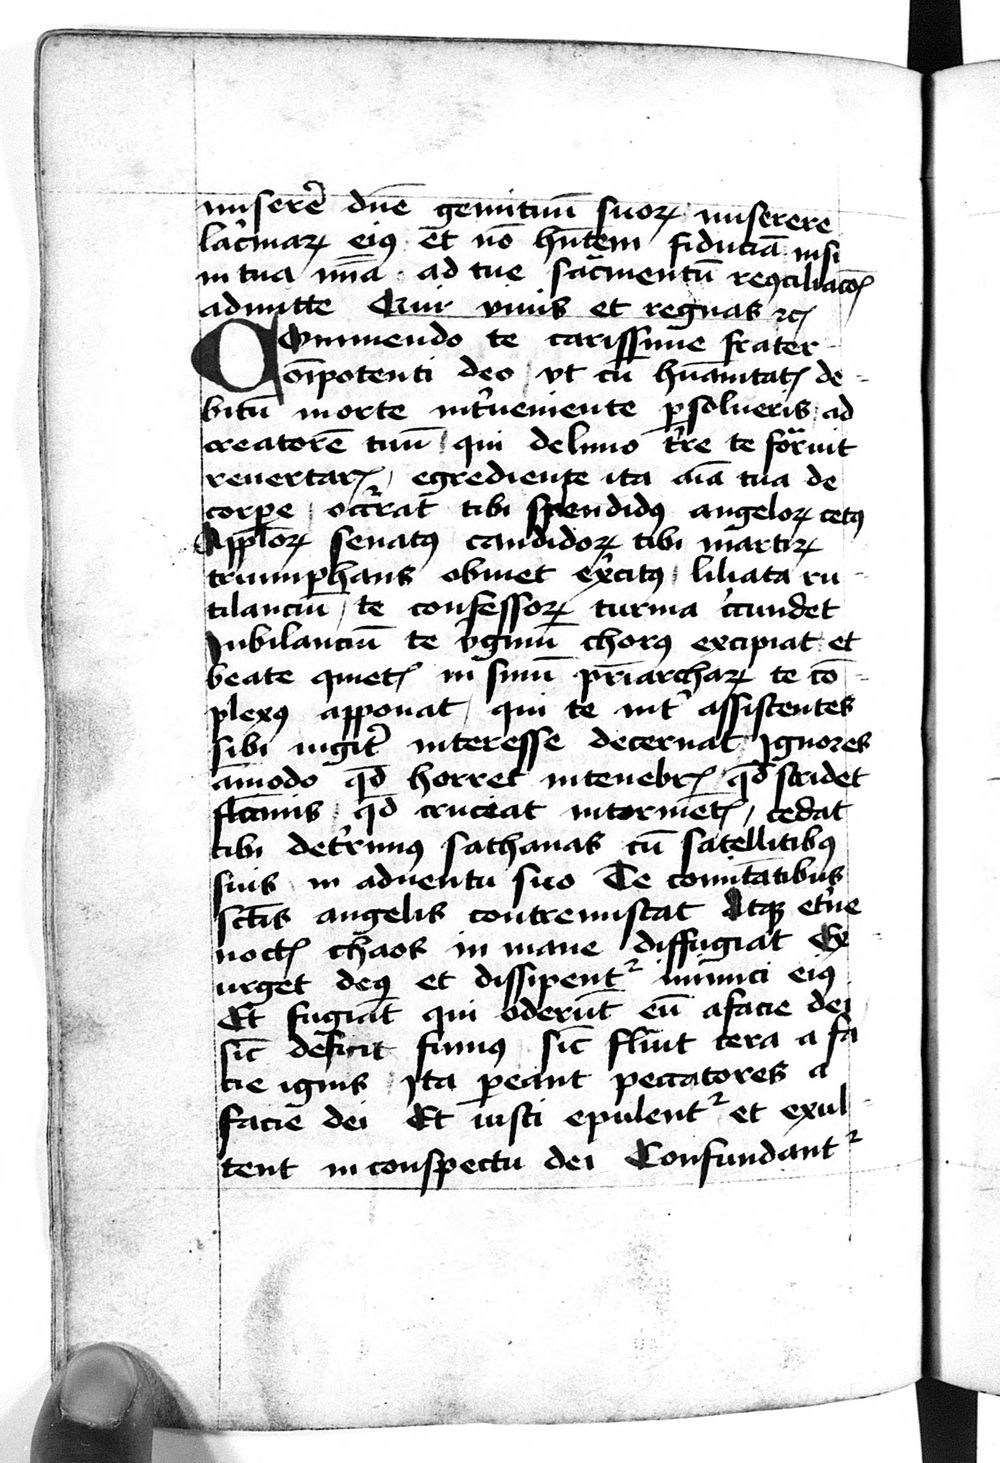 miserē dn̄e gemituū suoꝝ miserere
lac̄rmaꝝ eiꝯ et nō hn̄tem fiduciā nisi
in tua mīa ad tue sac̄mentū recōciliacōꝭ
admitte Qui viuis et regnas ⁊cꝭ
Commendo te carissime frater
oīpotenti deo vt cū hūanitatꝭ de-
bitū morte int̄ueniente ꝑsolueris ad
creatorē tuū qui de limo t̄re te formͣuit
reuertarꝭ egrediente ita aīa tua de
corꝑe occ̄rat tibi splendidꝯ angeloꝝ cetꝯ
Appl̄oꝝ senatꝯ candidoꝝ tibi martirꝝ
triumphans obuiet ex̄citꝯ liliata ru-
tilanciū te confessoꝝ turma c̄cundet
Jubilanciū te v̄ginū chorꝯ excipiat et
beate quietꝭ in sinū pr̄iarchaꝝ te cō-
plexꝯ apponat qui te int̄ assistentes
sibi iugit̄ interesse decernat Jgnores
am̄odo qd̄ horret in tenebrꝭ qd̄ stridet
flāmis qd̄ cruciat in tormētꝭ cedat
tibi det̄rimꝯ sathanas cū satellitibꝯ
suis in aduentu suo Te comitātibus
sctīs angelis contremiscat Atqꝫ et̄ne
noctꝭ chaos in mane diffugiat Ex-
urget deꝯ et dissipent᷑ inimici eiꝯ
Et fugiāt qui oderūt eū a facie dei
sic̄ deficit fumꝯ sic̄ fluīt cera a fa
cie ignis Jta ꝑeant peccatores a
facie dei Et iusti epulent᷑ et exul-
tent in conspectu dei Confundant᷑